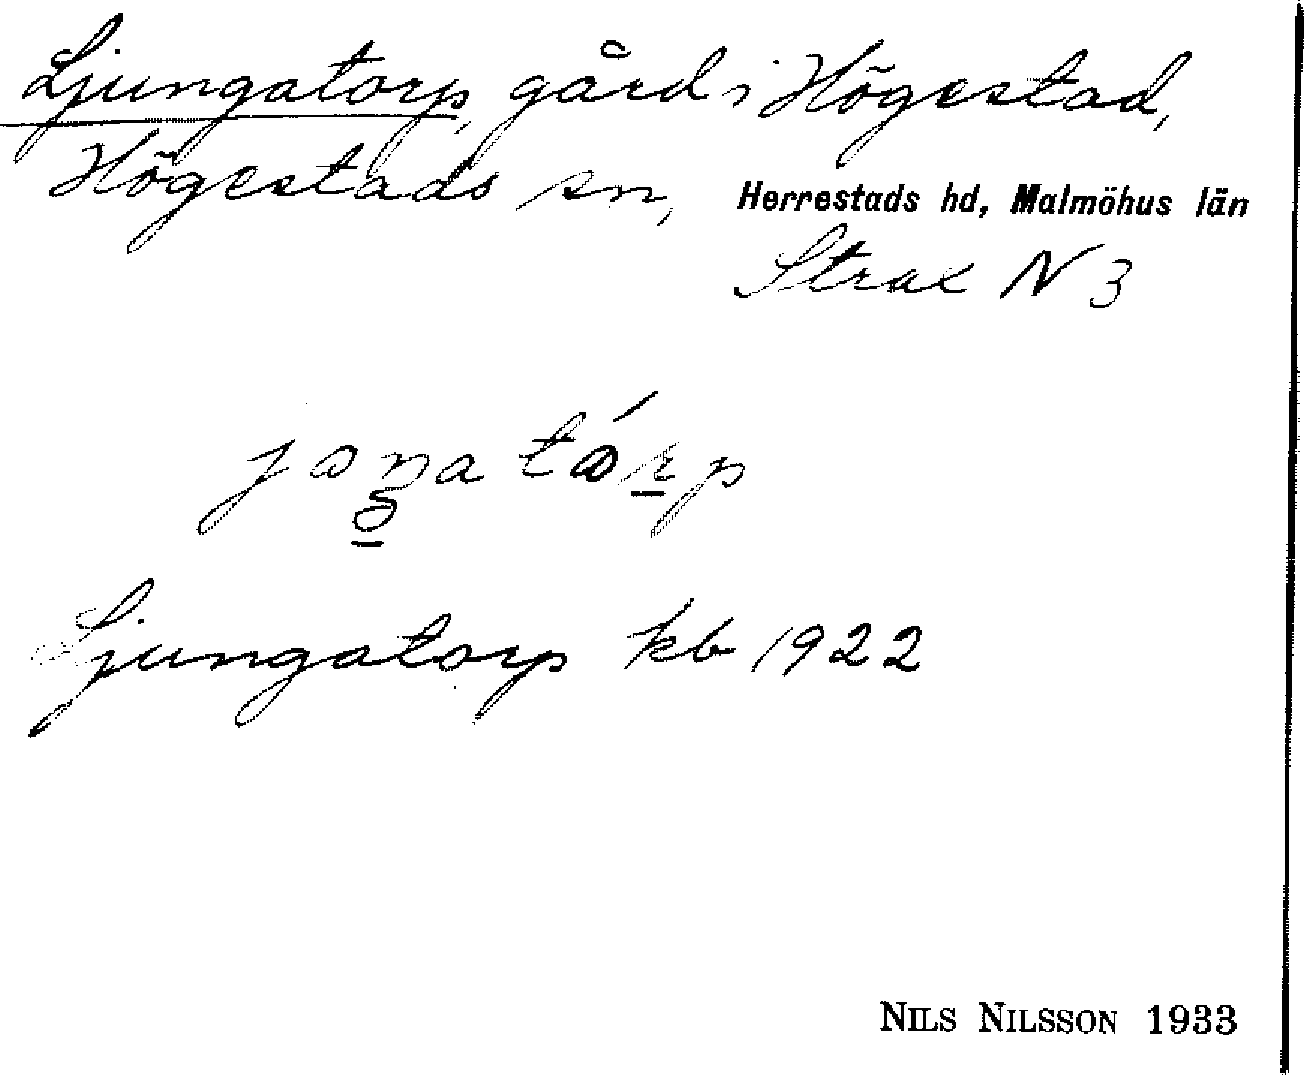 Ljungatorp, gård i Högestad,
Högestads sn, Herrestads hd, Malmöhus län
Strax N 3
Ljungatorp kb 1922
NILS NILSSON 1933